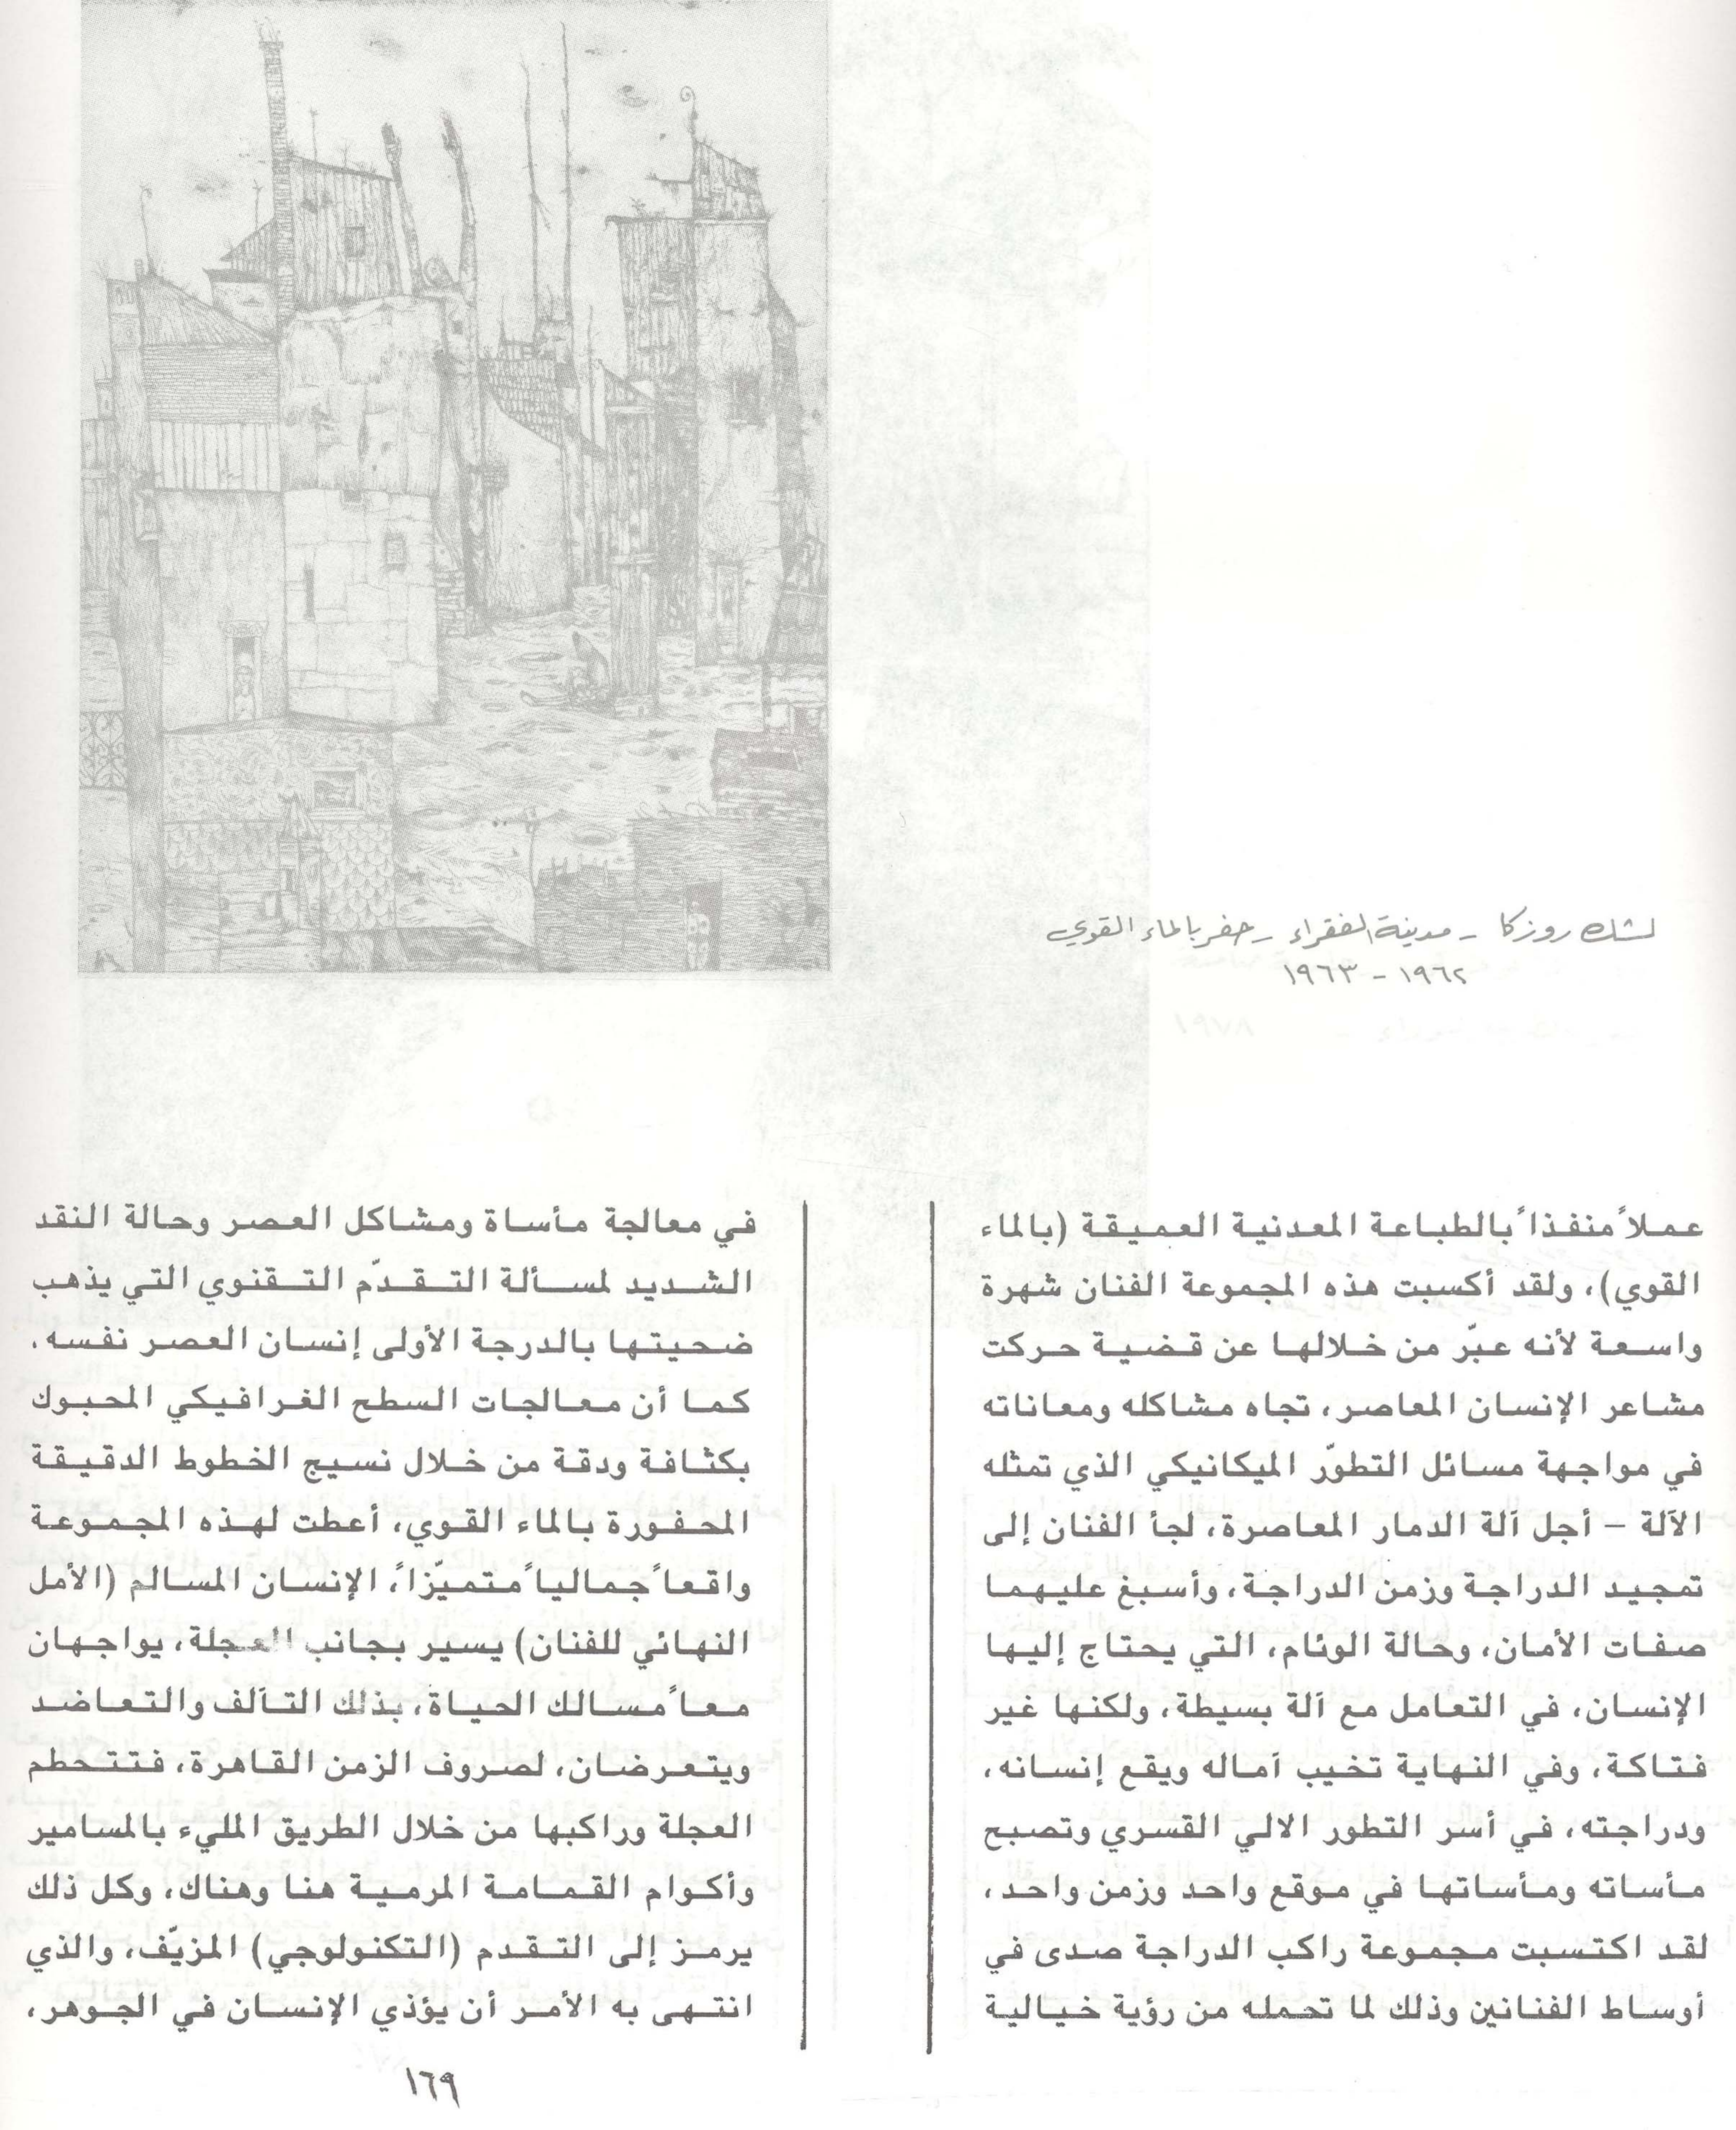 لشك روزكا - مدينة الفقراء - حفر بالماء القوي
١٩٦٢ - ١٩٦٣
عملاً منفذاً بالطباعة المعدنية العميقة (بالماء
القوي)، ولقد أكسبت هذه المجموعة الفنان شهرة
واسعة لأنه عبّر من خلالها عن قضية حركت
مشاعر الإنسان المعاصر، تجاه مشاكله ومعاناته
في مواجهة مسائل التطوّر الميكانيكي الذي تمثله
الآلة - أجل آلة الدمار المعاصرة، لجأ الفنان إلى
تمجيد الدراجة وزمن الدراجة، وأسبغ عليهما
صفات الأمان، وحالة الوئام، التي يحتاج إليها
الإنسان، في التعامل مع آلة بسيطة، ولكنها غير
فتاكة، وفي النهاية تخيب آماله ويقع إنسانه،
ودراجته، في أسر التطور الالي القسري وتصبح
مأساته ومأساتها في موقع واحد وزمن واحد،
لقد اكتسبت مجموعة راكب الدراجة صدى في
أوساط الفنانين وذلك لما تحمله من رؤية خيالية
في معالجة مأساة ومشاكل العصر وحالة النقد
الشديد لمسألة التقدّم التقنوي التي يذهب
ضحيتها بالدرجة الأولى إنسان العصر نفسه.
كما أن معالجات السطح الغرافيكي المحبوك
بكثافة ودقة من خلال نسيج الخطوط الدقيقة
المحفورة بالماء القوي، أعطت لهذه المجموعة
واقعاً جمالياً متميّزاً، الإنسان المسالم (الأمل
النهائي للفنان) يسير بجانب العجلة، يواجهان
معاً مسالك الحياة، بذلك التآلف والتعاضد
ويتعرضان، لصروف الزمن القاهرة، فتتحطم
العجلة وراكبها من خلال الطريق المليء بالمسامير
وأكوام القمامة المرمية هنا وهناك، وكل ذلك
يرمز إلى التقدم (التكنولوجي) المزيّف، والذي
انتهى به الأمر أن يؤذي الإنسان في الجوهر،
١٦٩